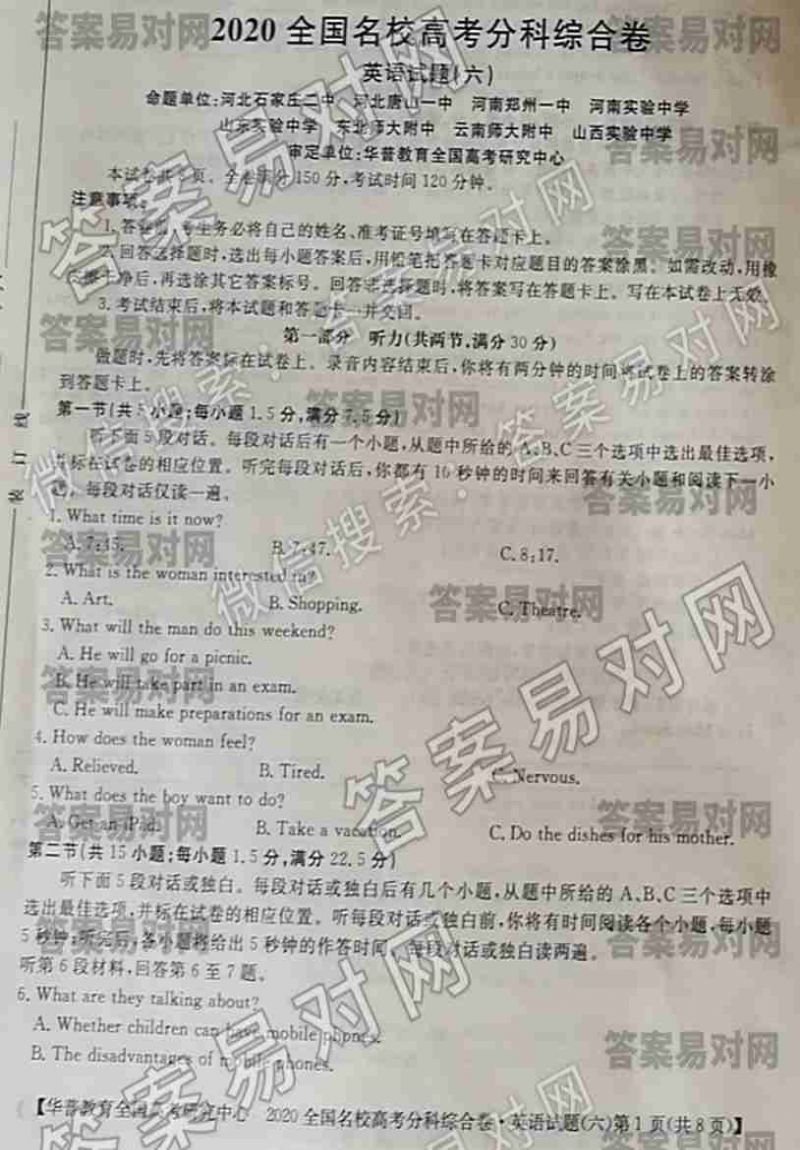 2020全国名校高考分科综合卷
英语试题(六)
命题单位:河北石家庄二中 河北唐山一中 河南郑州一中 河南实验中学
山东实验中学 东北师大附中 云南师大附中 山西实验中学
审定单位:华普教育全国高考研究中心
本试卷共8页。全卷满分150分,考试时间120分钟。
注意事项:
1.答卷前,考生务必将自己的姓名、准考证号填写在答题卡上。
2.回答选择题时,选出每小题答案后,用铅笔把答题卡对应题目的答案涂黑。如需改动,用橡
皮擦干净后,再选涂其它答案标号。回答非选择题时,将答案写在答题卡上。写在本试卷上无效。
3.考试结束后,将本试题和答题卡一并交回。
第一部分 听力(共两节,满分30分)
做题时,先将答案标在试卷上。录音内容结束后,你将有两分钟的时间将试卷上的答案转涂
到答题卡上。
第一节(共5小题;每小题1.5分,满分7.5分)
听下面5段对话。每段对话后有一个小题,从题中所给的A、B、C三个选项中选出最佳选项,
并标在试卷的相应位置。听完每段对话后,你都有10秒钟的时间来回答有关小题和阅读下一小
题。每段对话仅读一遍。
1. What time is it now?
A. 7:15. B. 7:47. C. 8:17.
2. What is the woman interested in?
A. Art. B. Shopping. C. Theatre.
3. What will the man do this weekend?
A. He will go for a picnic.
B. He will take part in an exam.
C. He will make preparations for an exam.
4. How does the woman feel?
A. Relieved. B. Tired. C. Nervous.
5. What does the boy want to do?
A. Get an iPad. B. Take a vacation. C. Do the dishes for his mother.
第二节(共15小题;每小题1.5分,满分22.5分)
听下面5段对话或独白。每段对话或独白后有几个小题,从题中所给的A、B、C三个选项中
选出最佳选项,并标在试卷的相应位置。听每段对话或独白前,你将有时间阅读各个小题,每小题
5秒钟;听完后,各小题将给出5秒钟的作答时间。每段对话或独白读两遍。
听第6段材料,回答第6至7题。
6. What are they talking about?
A. Whether children can have mobile phones.
B. The disadvantages of mobile phones.
【华普教育全国高考研究中心 2020全国名校高考分科综合卷·英语试题(六)第1页(共8页)】
装 订 线
答案易对网
微信搜索:答案易对网